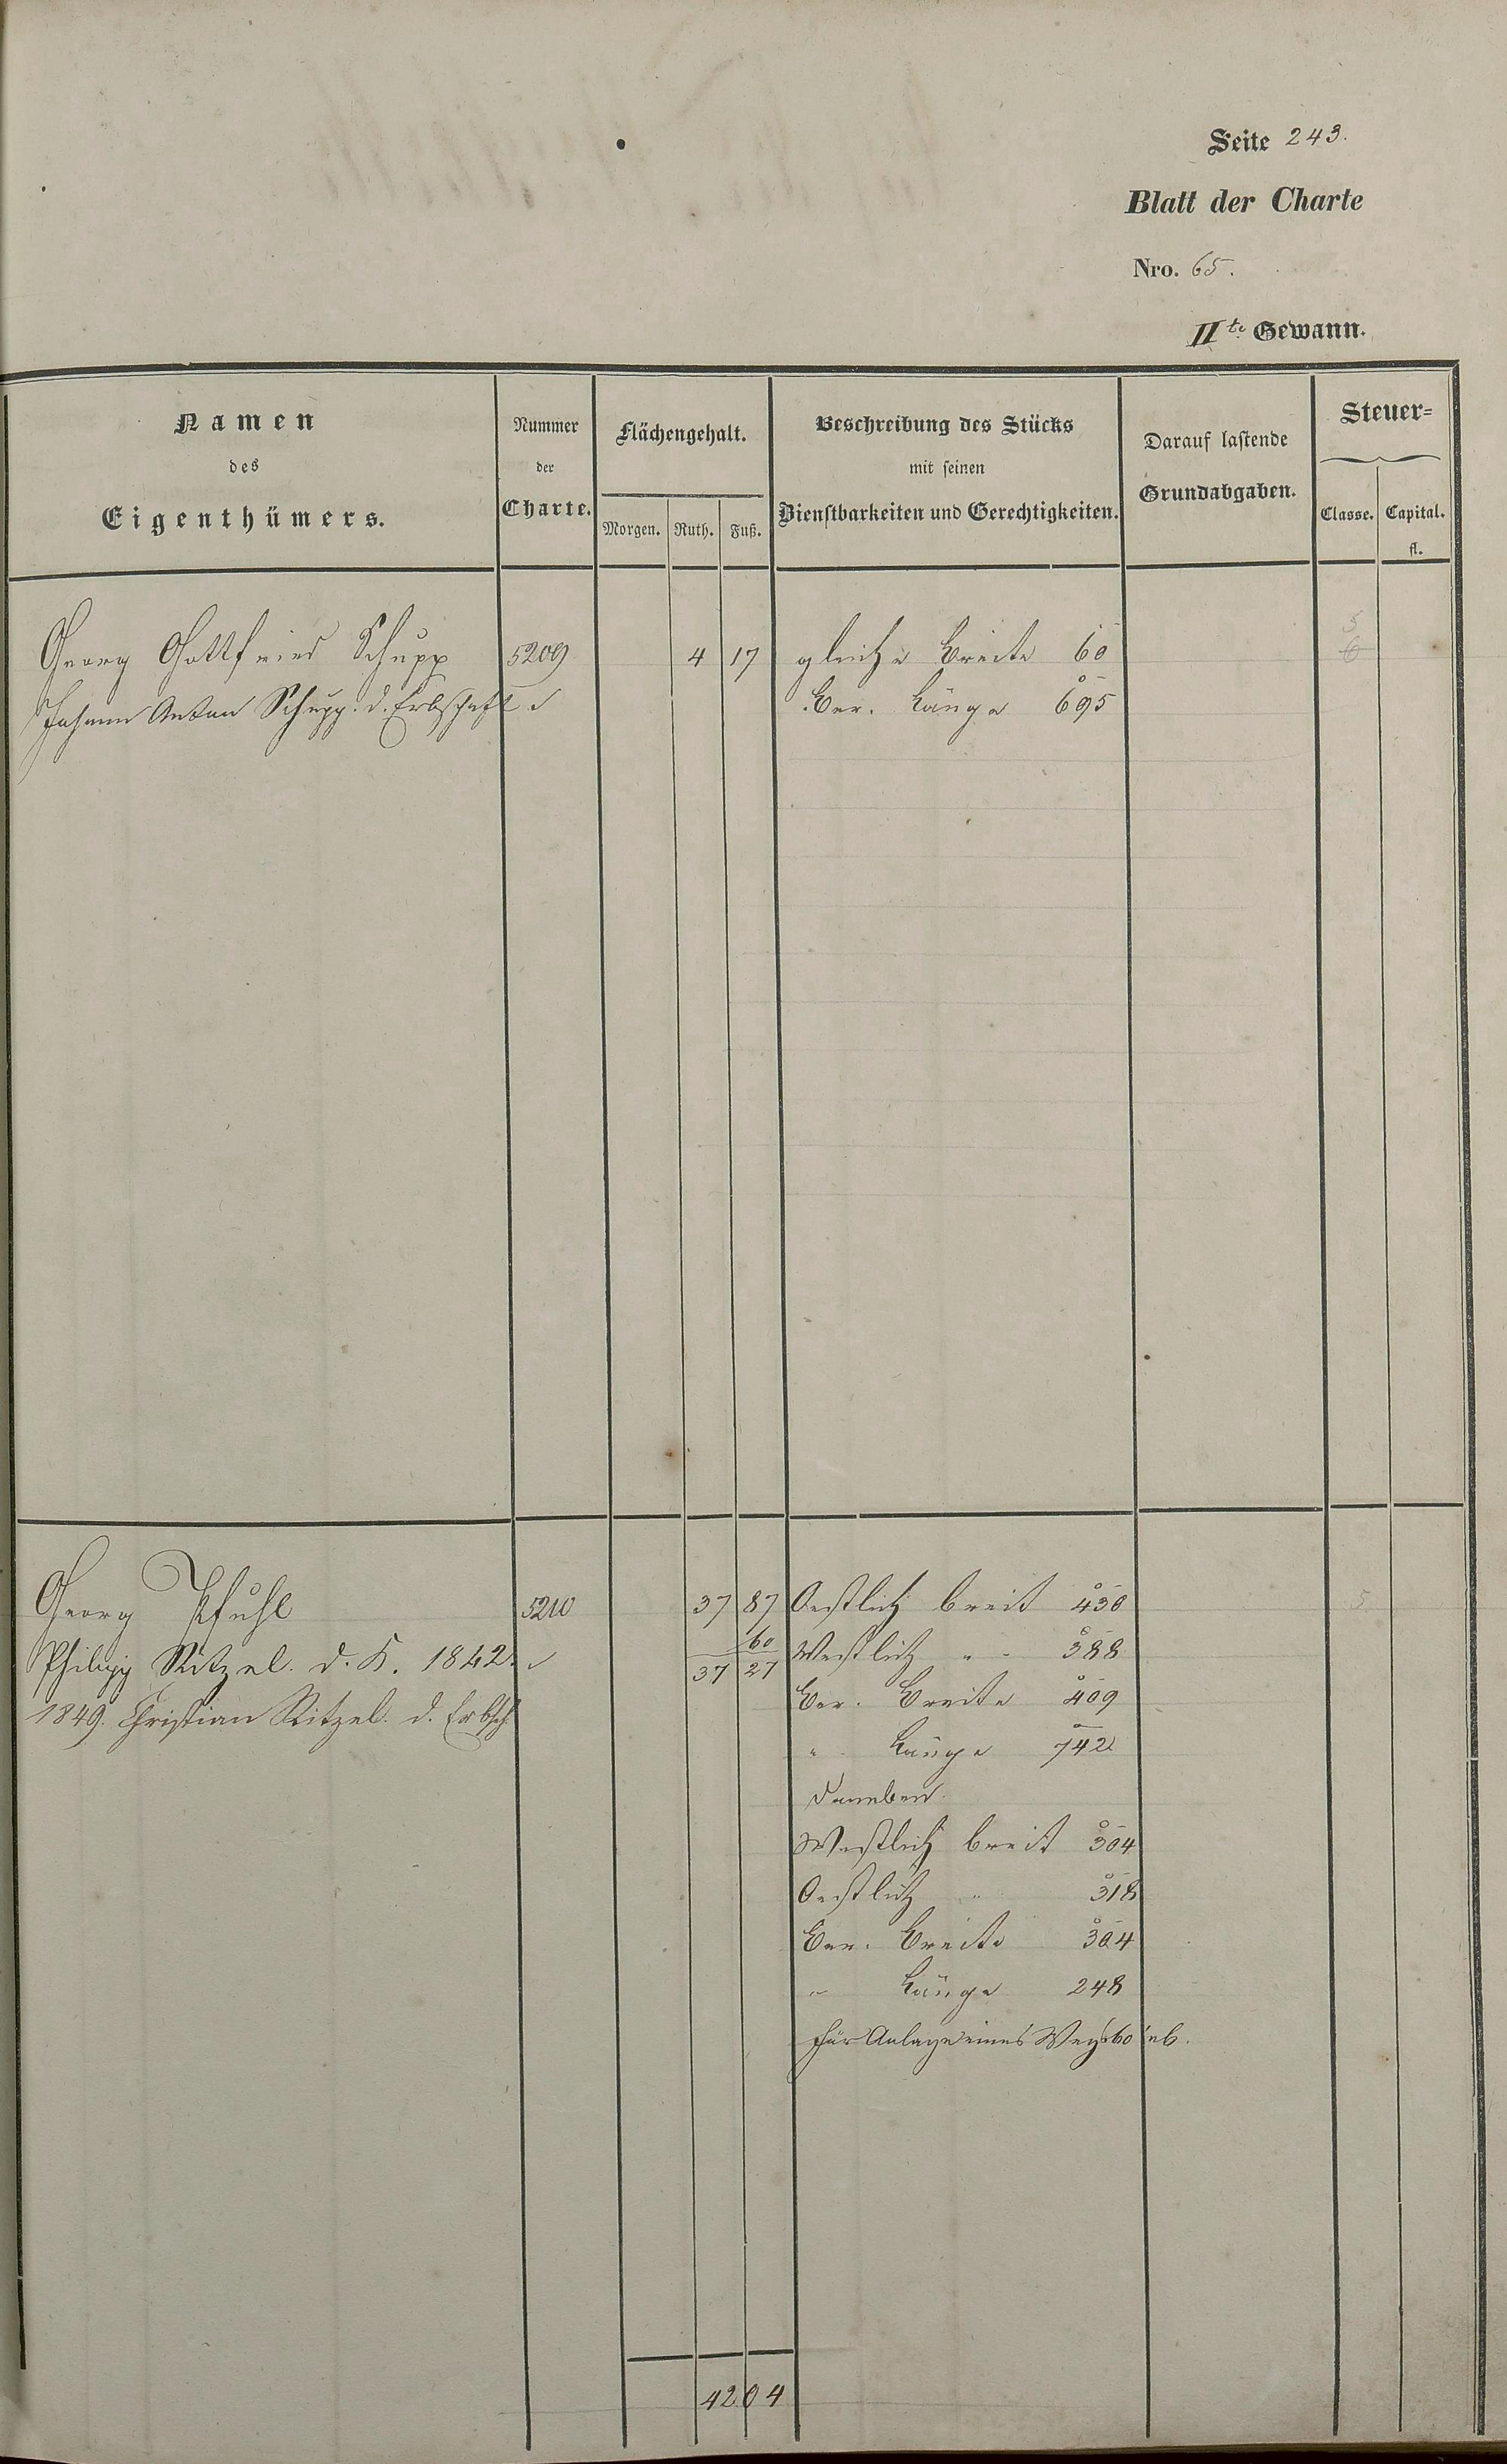 Seite 243.
Blatt der Charte
Nro. 65.
IIte Gewann.
Namen
des
Eigenthümers.
Nummer
der
Charte.
Flächengehalt.
Morgen. Ruth. Fuß.
Beschreibung des Stücks
mit seinen
Dienstbarkeiten und Gerechtigkeiten.
Darauf lastende
Grundabgaben.
Steuer=
Classe. Capital.
fl.
Georg Gottfried Schupp 5209 4 17 gleiche Breite 60 5
6
Johann Anton Schupp. d. Erbschaft Ber. Länge 695
Georg Pfuhl 5210 37 87 Oestlich breit 430 5
Philipp Ritzel. d. K. 1842. 60 Westlich " - 388
37 27
1849. Christian Ritzel. d. Erbsch. Ber. Breite 409
" Länge 742
Daneben.
Westlich breit 304
Oestlich " 318
Ber. Breite 304
" Länge 248
für Anlage eines Wegs 60 ab.
42 04